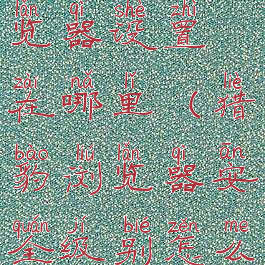 lǎn qì shè zhì
览器设置
zài nǎ lǐ liè
在哪里（猎
bào liú lǎn qì ān
豹浏览器安
quán jí bié zěn me
全级别怎么